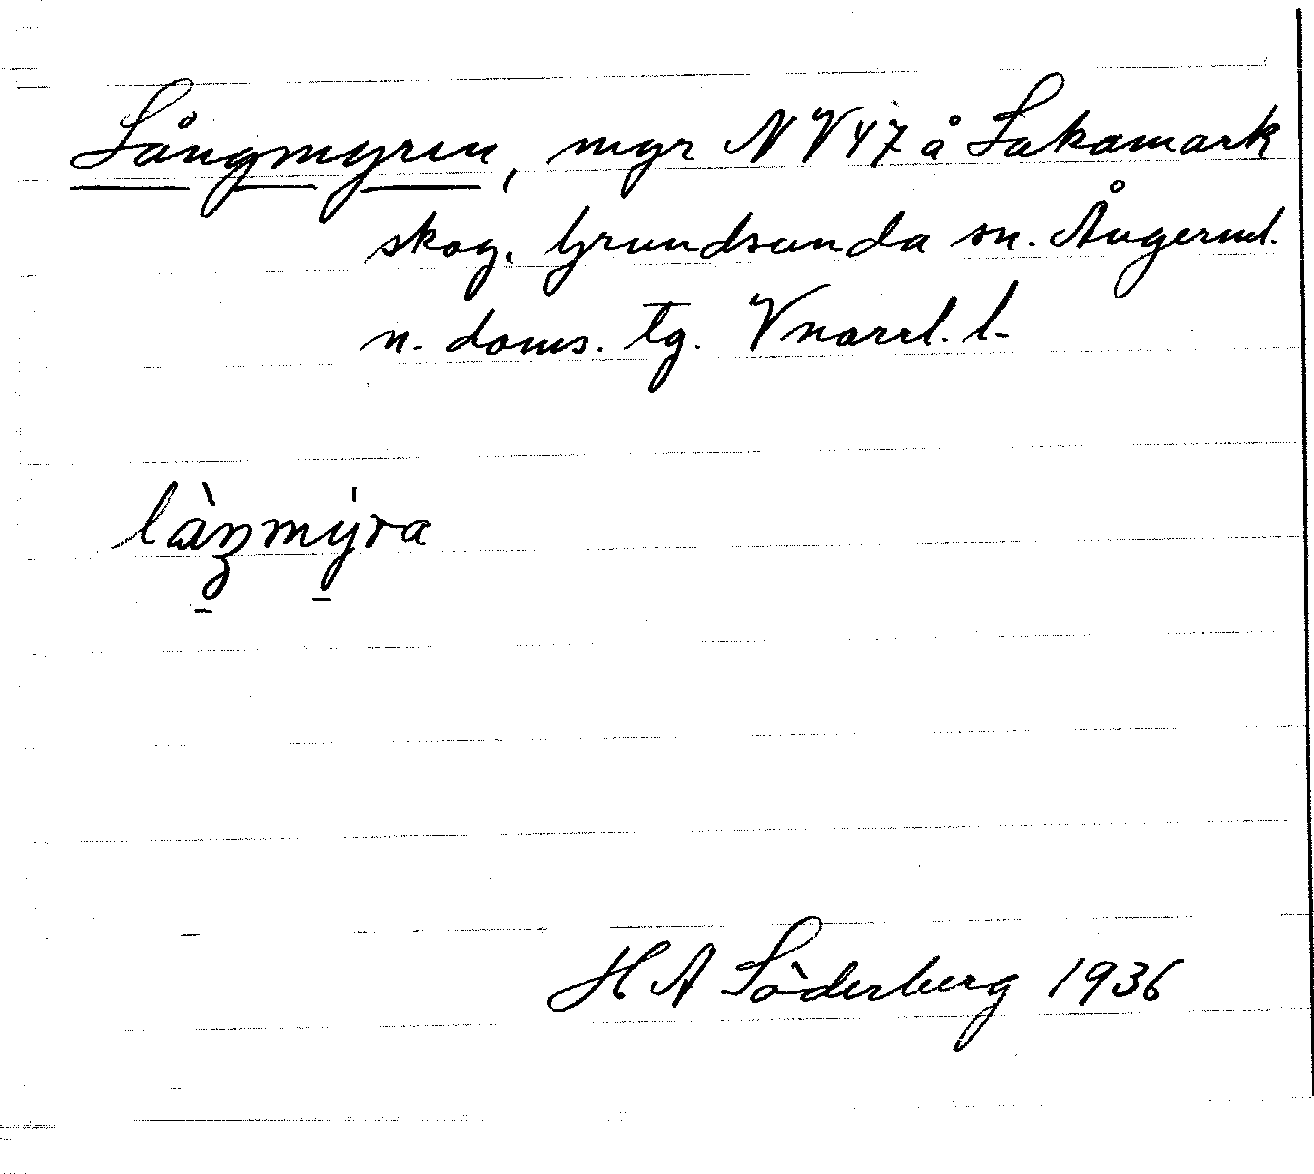 Långmyren, myr NV47 å Lakamark
skog. Grundsunda sn. Ångerml.
n. doms. tg. Vnorrl. l.
làŋmýra
H A Söderberg 1936